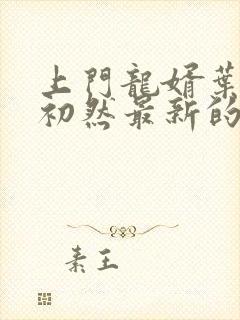 上門龍婿葉
初然最新的
素王